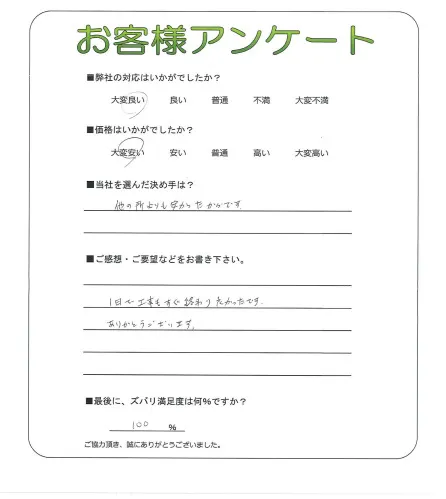 お客様アンケート
■弊社の対応はいかがでしたか？
大変良い 良い 普通 不満 大変不満
■価格はいかがでしたか？
大変安い 安い 普通 高い 大変高い
■当社を選んだ決め手は？
他の所よりも安かったからです。
■ご感想・ご要望などをお書き下さい。
1日で工事もすぐ終わりよかったです。
ありがとうございます。
■最後に、ズバリ満足度は何％ですか？
100 %
ご協力頂き、誠にありがとうございました。